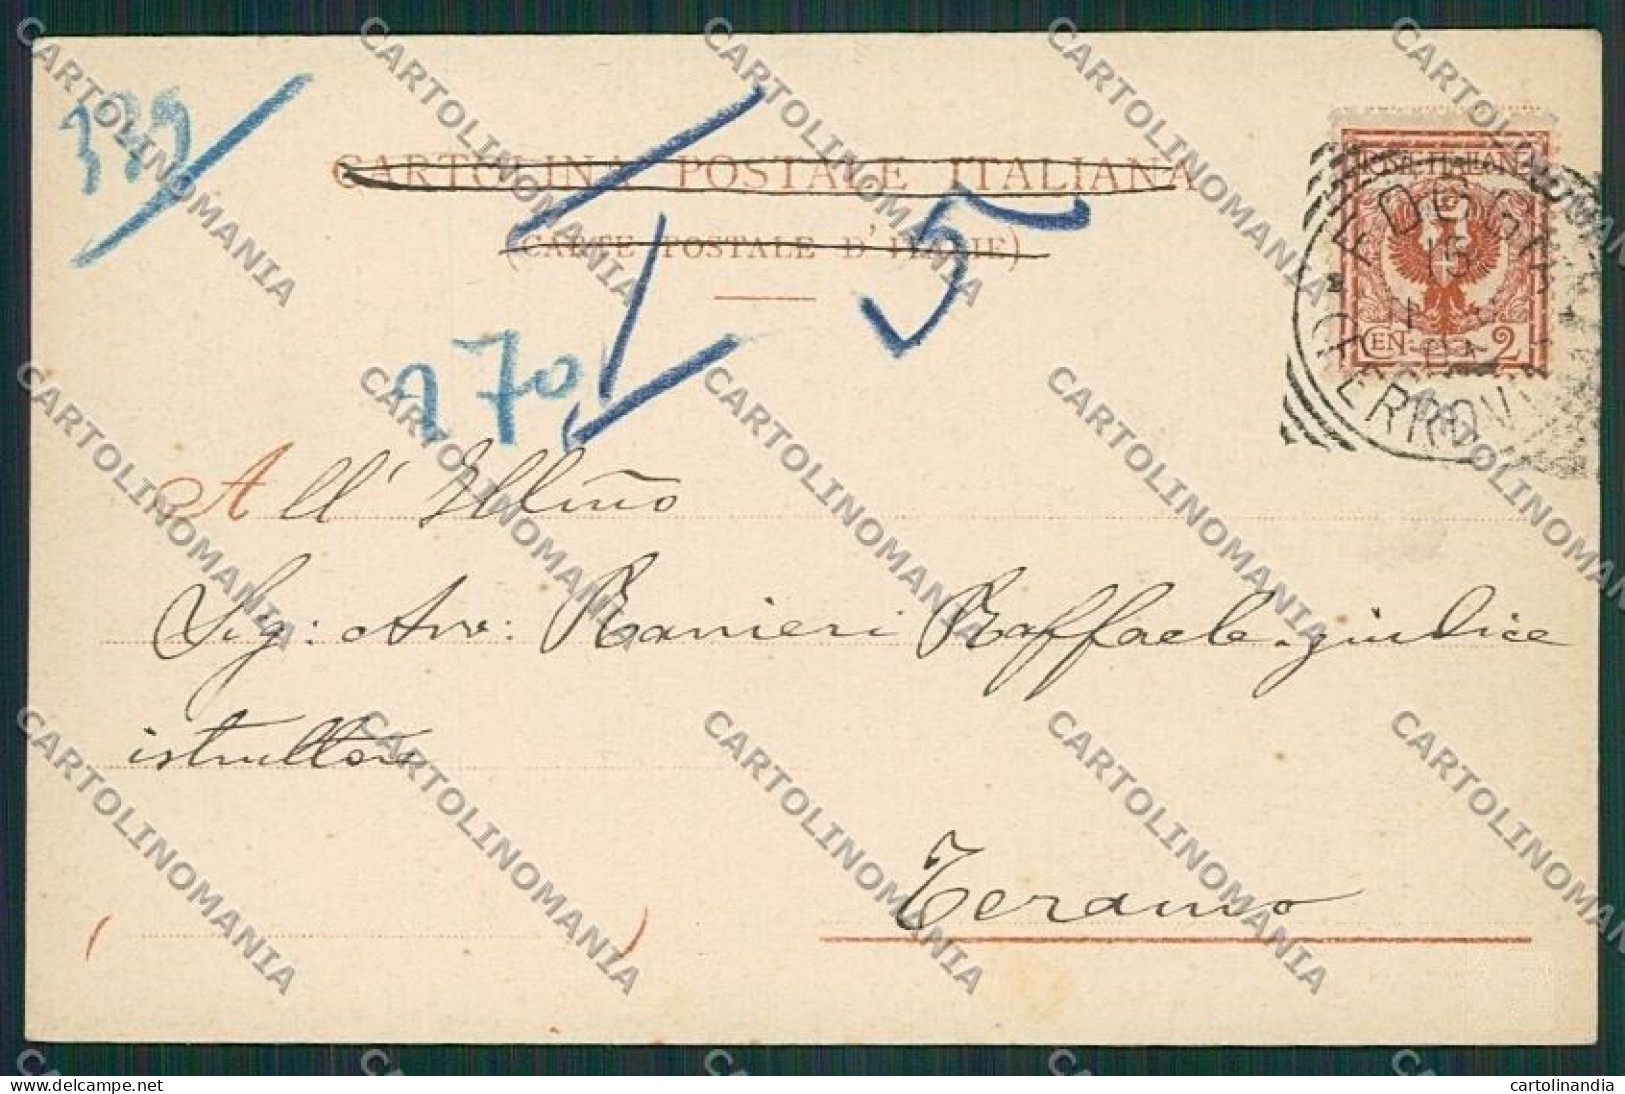 379
CARTOLINA POSTALE ITALIANA
(CARTE POSTALE D'ITALIE)
5
270
POSTE ITALIANE
CEN. 2
FOGGIA
15
FERROVIA
All' Illmo
Sig: Avv: Ranieri Raffaele giudice
istruttore
Teramo
CARTOLINOMANIA
delcampe.net
cartolinandia